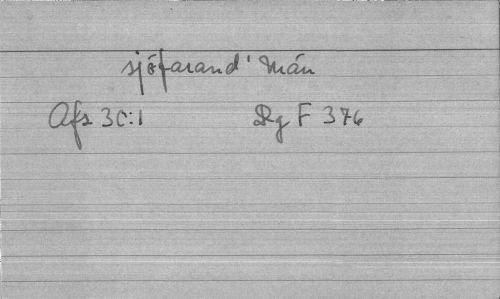 sjöfarand' mán
Afs 3C:1 Dg F 376